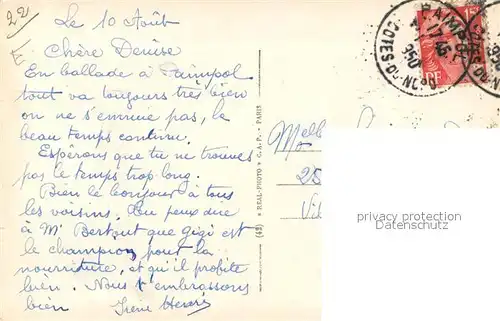 22
E
Le 10 Août
Chère Denise
En ballade à Paimpol
tout va toujours très bien
on ne s'ennuie pas, le
beau temps continu.
Espérons que tu ne trouves
pas le temps trop long.
Bien le bonjour à tous
les voisins. Tu peux dire
à Mr Bertout que gigi est
le champion pour la
nourriture, et qu'il profite
bien. Nous t'embrassons
bien
Irène Henri
(45) " REAL-PHOTO " C. A. P. - PARIS
Melle
25
Vil
PAIMPOL
17
1950
COTES-DU-NORD
15
RF
privacy protection
Datenschutz